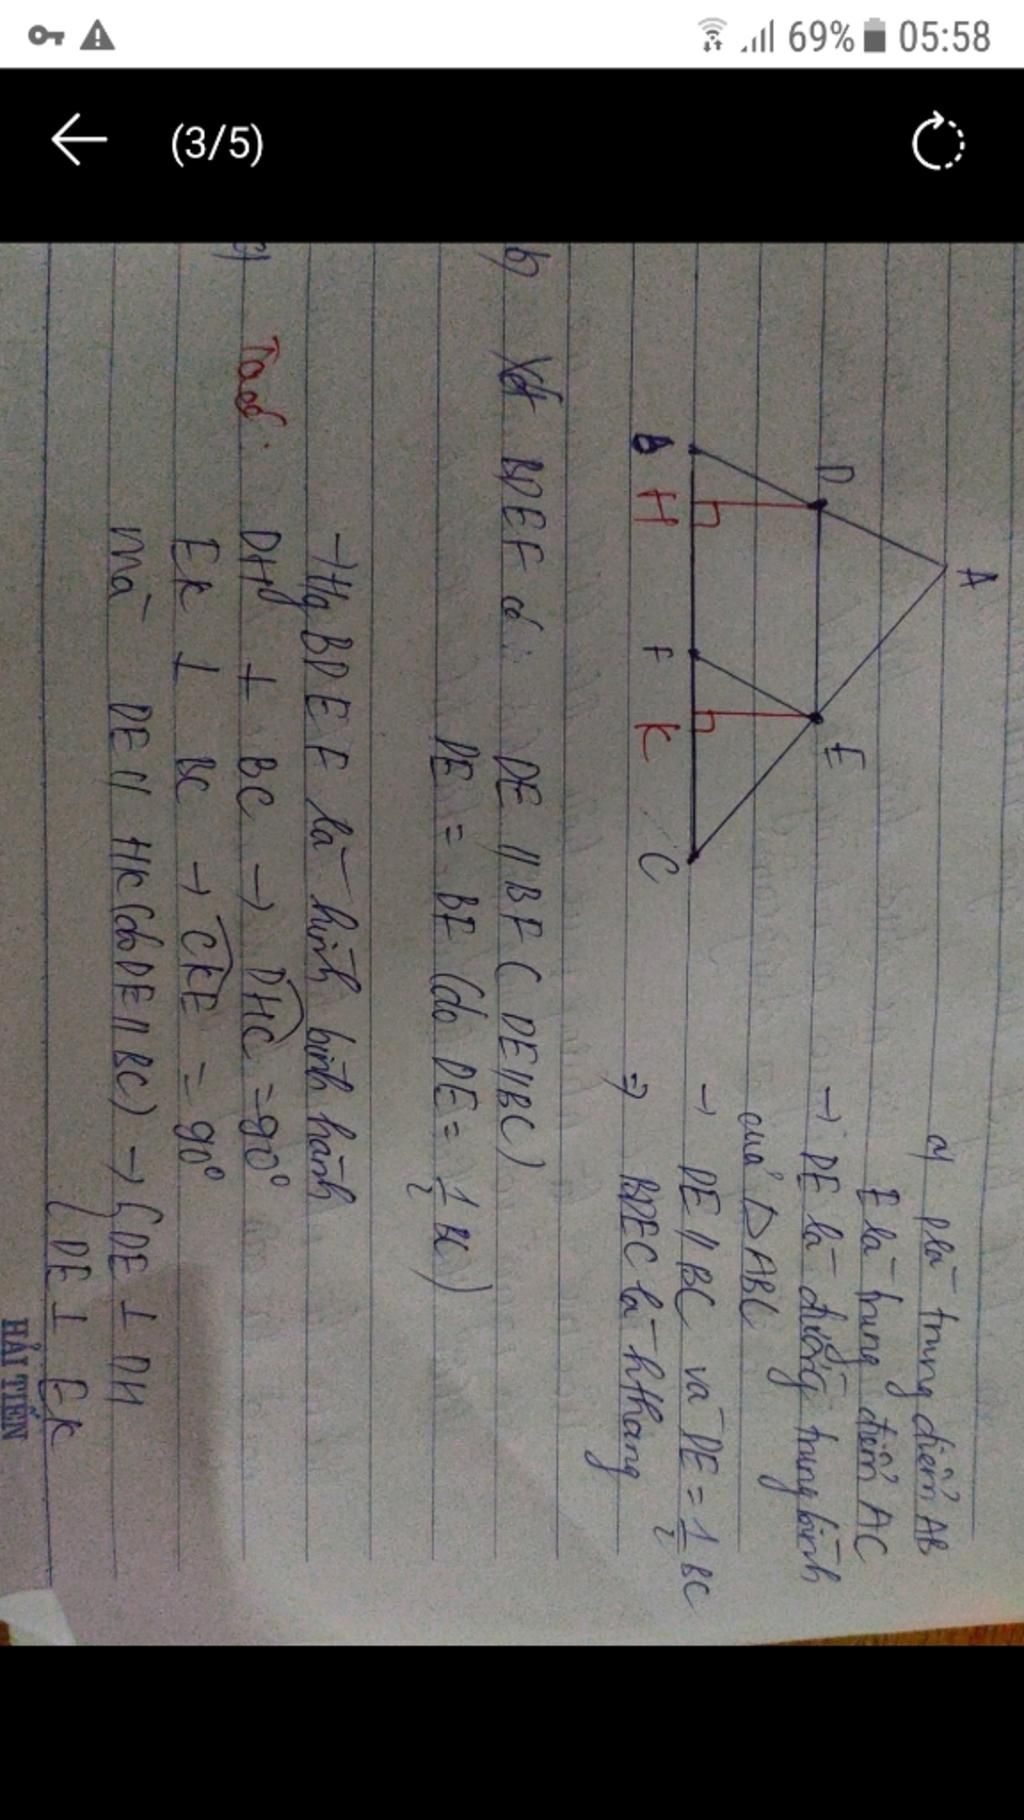 69% 05:58
(3/5)
A
D
E
B
H
F
K
C
a) D là trung điểm AB
E là trung điểm AC
→ DE là đường trung bình
của ΔABC
→ DE // BC và DE = 1/2 BC
⇒ BDEC là hthang
b) Xét BDEF có: DE // BF (DE // BC)
DE = BF (do DE = 1/2 BC)
→ Hg BDEF là hình bình hành
c) Ta có: DH ⊥ BC → DHC = 90°
EK ⊥ BC → CKE = 90°
mà DE // HK (do DE // BC) → { DE ⊥ DH
DE ⊥ EK
HẢI TIẾN